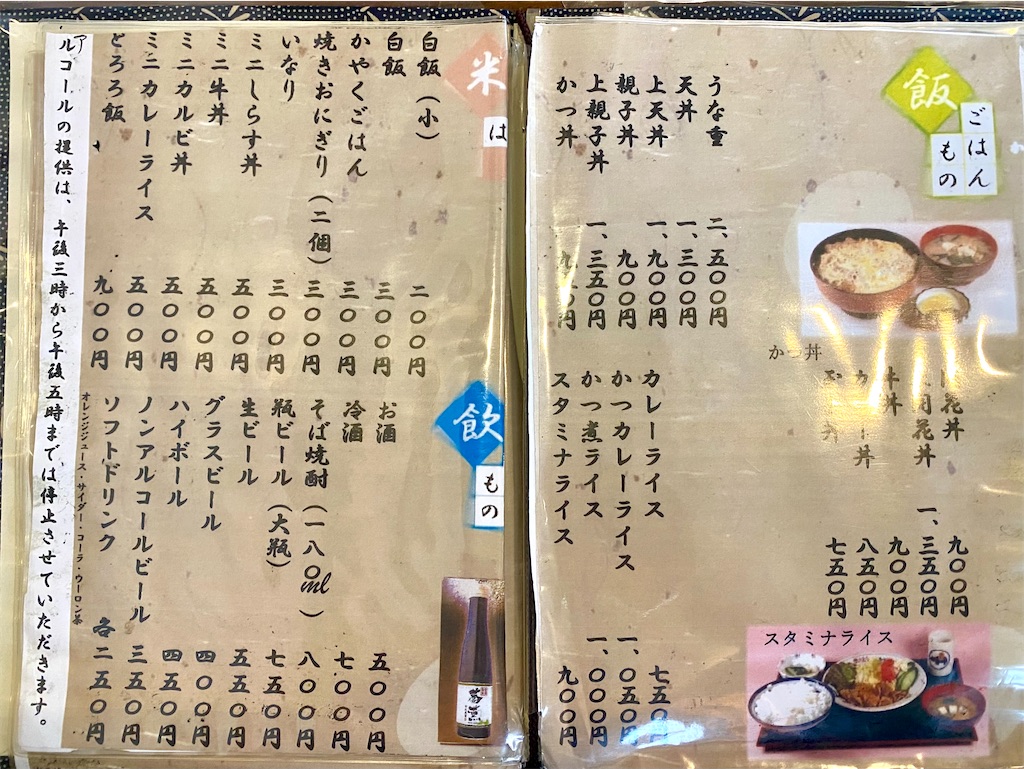 飯
ごはん
もの
うな重 二、五〇〇円
天丼 一、三〇〇円
上天丼 一、九〇〇円
親子丼 九〇〇円
上親子丼 一、三五〇円
かつ丼
かつ丼
花丼 九〇〇円
花丼 一、三五〇円
牛丼 九〇〇円
丼 八五〇円
丼 七五〇円
カレーライス 七五〇円
かつカレーライス 一、〇五〇円
かつ煮ライス 一、〇〇〇円
スタミナライス 九〇〇円
スタミナライス
米
は
白飯（小） 二〇〇円
白飯 三〇〇円
かやくごはん 三〇〇円
焼きおにぎり（二個） 三〇〇円
いなり 三〇〇円
ミニしらす丼 五〇〇円
ミニ牛丼 五〇〇円
ミニカルビ丼 五〇〇円
ミニカレーライス 五〇〇円
とろろ飯 九〇〇円
飲
もの
お酒 五〇〇円
冷酒 七〇〇円
そば焼酎（一八〇ml） 八〇〇円
瓶ビール（大瓶） 七五〇円
生ビール 五五〇円
グラスビール 四〇〇円
ハイボール 四五〇円
ノンアルコールビール 三五〇円
ソフトドリンク 各二五〇円
オレンジジュース・サイダー・コーラ・ウーロン茶
アルコールの提供は、午後三時から午後五時までは停止させていただきます。